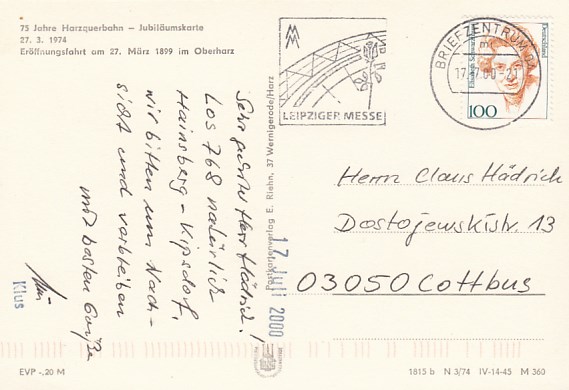 75 Jahre Harzquerbahn – Jubiläumskarte
27. 3. 1974
Eröffnungsfahrt am 27. März 1899 im Oberharz
LEIPZIGER MESSE
BRIEFZENTRUM
Deutschland
100
Sehr geehrter Herr Hädrich!
Los 768 natürlich
Hainsberg – Kipsdorf,
wir bitten um Nach-
sicht und verbleiben
mit besten Grüße
Klus
Postkartenverlag E. Riehn, 37 Wernigerode/Harz
17. Juli 2000
Herrn Claus Hädrich
Dostojewskistr. 13
03050 Cottbus
EVP -,20 M
1815 b N 3/74 IV-14-45 M 360